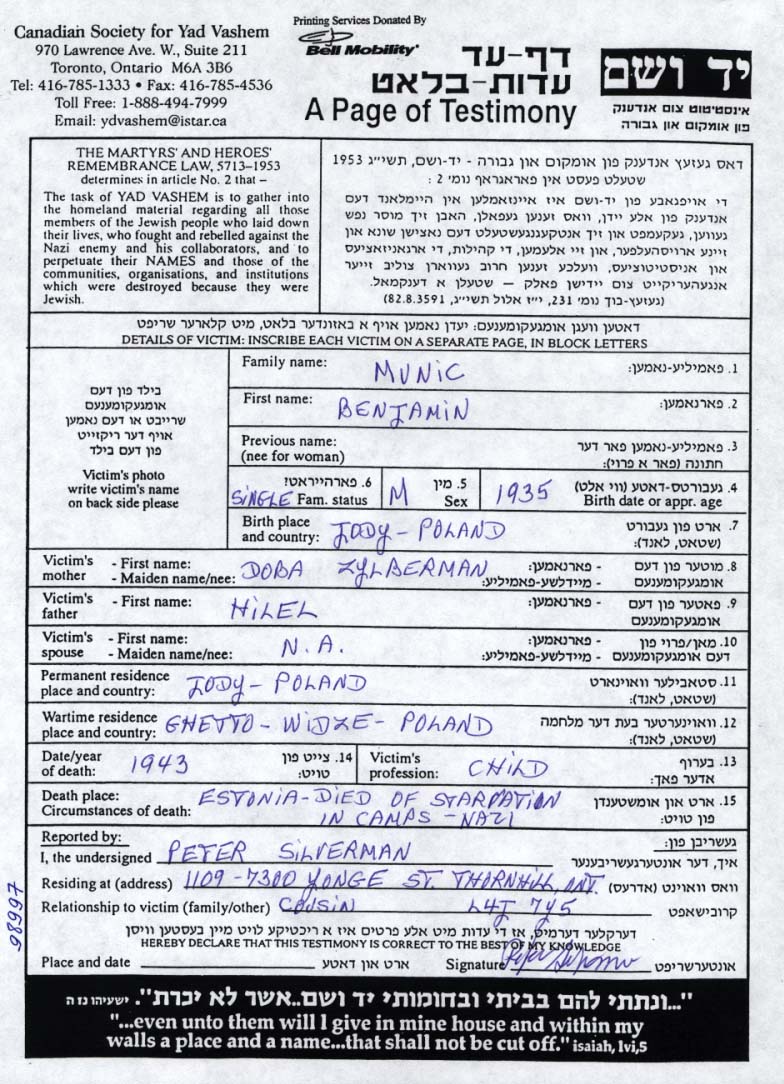 Canadian Society for Yad Vashem
970 Lawrence Ave. W., Suite 211
Toronto, Ontario M6A 3B6
Tel: 416-785-1333 • Fax: 416-785-4536
Toll Free: 1-888-494-7999
Email: ydvashem@istar.ca
Printing Services Donated By
Bell Mobility
דף-עד
עדות-בלאט
A Page of Testimony
יד ושם
אינסטיטוט צום אנדענק
פון אומקום און גבורה
THE MARTYRS' AND HEROES'
REMEMBRANCE LAW, 5713–1953
determines in article No. 2 that –
The task of YAD VASHEM is to gather into
the homeland material regarding all those
members of the Jewish people who laid down
their lives, who fought and rebelled against the
Nazi enemy and his collaborators, and to
perpetuate their NAMES and those of the
communities, organisations, and institutions
which were destroyed because they were
Jewish.
דאס געזעץ אנדענק פון אומקום און גבורה - יד-ושם, תשי״ג 1953
שטעלט פעסט אין פאראגראף נומ׳ 2 :
די אויפגאבע פון יד-ושם איז איינזאמלען אין היימלאנד דעם
אנדענק פון אלע יידן, וואס זענען געפאלן, האבן זיך מוסר נפש
געווען, געקעמפט און זיך אנטקעגנגעשטעלט דעם נאצישן שונא און
זיינע ארויסהעלפער, און זיי אלעמען, די קהילות, די ארגאניזאציעס
און אינסטיטוציעס, וועלכע זענען חרוב געווארן צוליב זייער
אנגעהעריקייט צום יידישן פאלק – שטעלן א דענקמאל.
(געזעץ-בוך נומ׳ 231, י״ז אלול תשי״ג, 82.8.3591)
דאטען וועגן אומגעקומענעם: יעדן נאמען אויף א באזונדער בלאט, מיט קלארער שריפט
DETAILS OF VICTIM: INSCRIBE EACH VICTIM ON A SEPARATE PAGE, IN BLOCK LETTERS
בילד פון דעם
אומגעקומענעם
שרייבט או דעם נאמען
אויף דער ריקזייט
פון דעם בילד
Victim's photo
write victim's name
on back side please
Family name: MUNIC 1. פאמיליע-נאמען:
First name: BENJAMIN 2. פארנאמען:
Previous name: 3. פאמיליע-נאמען פאר דער
(nee for woman) חתונה (פאר א פרוי):
6. פארהייראט? 5. מין 4. געבורטס-דאטע (ווי אלט)
SINGLE Fam. status M Sex 1935 Birth date or appr. age
Birth place 7. ארט פון געבורט
and country: JODY - POLAND (שטאט, לאנד):
Victim's - First name: - פארנאמען: 8. מוטער פון דעם
mother - Maiden name/nee: DOBA ZYLBERMAN - מיידלשע-פאמיליע: אומגעקומענעם
Victim's - First name: - פארנאמען: 9. פאטער פון דעם
father HILEL אומגעקומענעם
Victim's - First name: - פארנאמען: 10. מאן/פרוי פון
spouse - Maiden name/nee: N.A. - מיידלשע-פאמיליע: דעם אומגעקומענעם
Permanent residence 11. סטאבילער וואוינארט
place and country: JODY - POLAND (שטאט, לאנד):
Wartime residence 12. וואוינערטער בעת דער מלחמה
place and country: GHETTO - WIDZE - POLAND (שטאט, לאנד):
Date/year 14. צייט פון Victim's 13. בערוף
of death: 1943 טויט: profession: CHILD אדער פאך:
Death place: ESTONIA - DIED OF STARVATION 15. ארט און אומשטענדן
Circumstances of death: IN CAMPS - NAZI פון טויט:
Reported by: געשריבן פון:
I, the undersigned PETER SILVERMAN איך, דער אונטערגעשריבענער
Residing at (address) 1109 - 7300 YONGE ST. THORNHILL, ONT. וואס וואוינט (אדרעס)
Relationship to victim (family/other) COUSIN L4J 7Y5 קרובישאפט
דערקלער דערמיט, אז די עדות מיט אלע פרטים איז א ריכטיקע לויט מיין בעסטען וויסן
HEREBY DECLARE THAT THIS TESTIMONY IS CORRECT TO THE BEST OF MY KNOWLEDGE
Place and date ארט און דאטע Signature אונטערשריפט
98997
"...ונתתי להם בביתי ובחומותי יד ושם..אשר לא יכרת". ישעיהו נז ה
"...even unto them will I give in mine house and within my
walls a place and a name...that shall not be cut off." isaiah, lvi,5